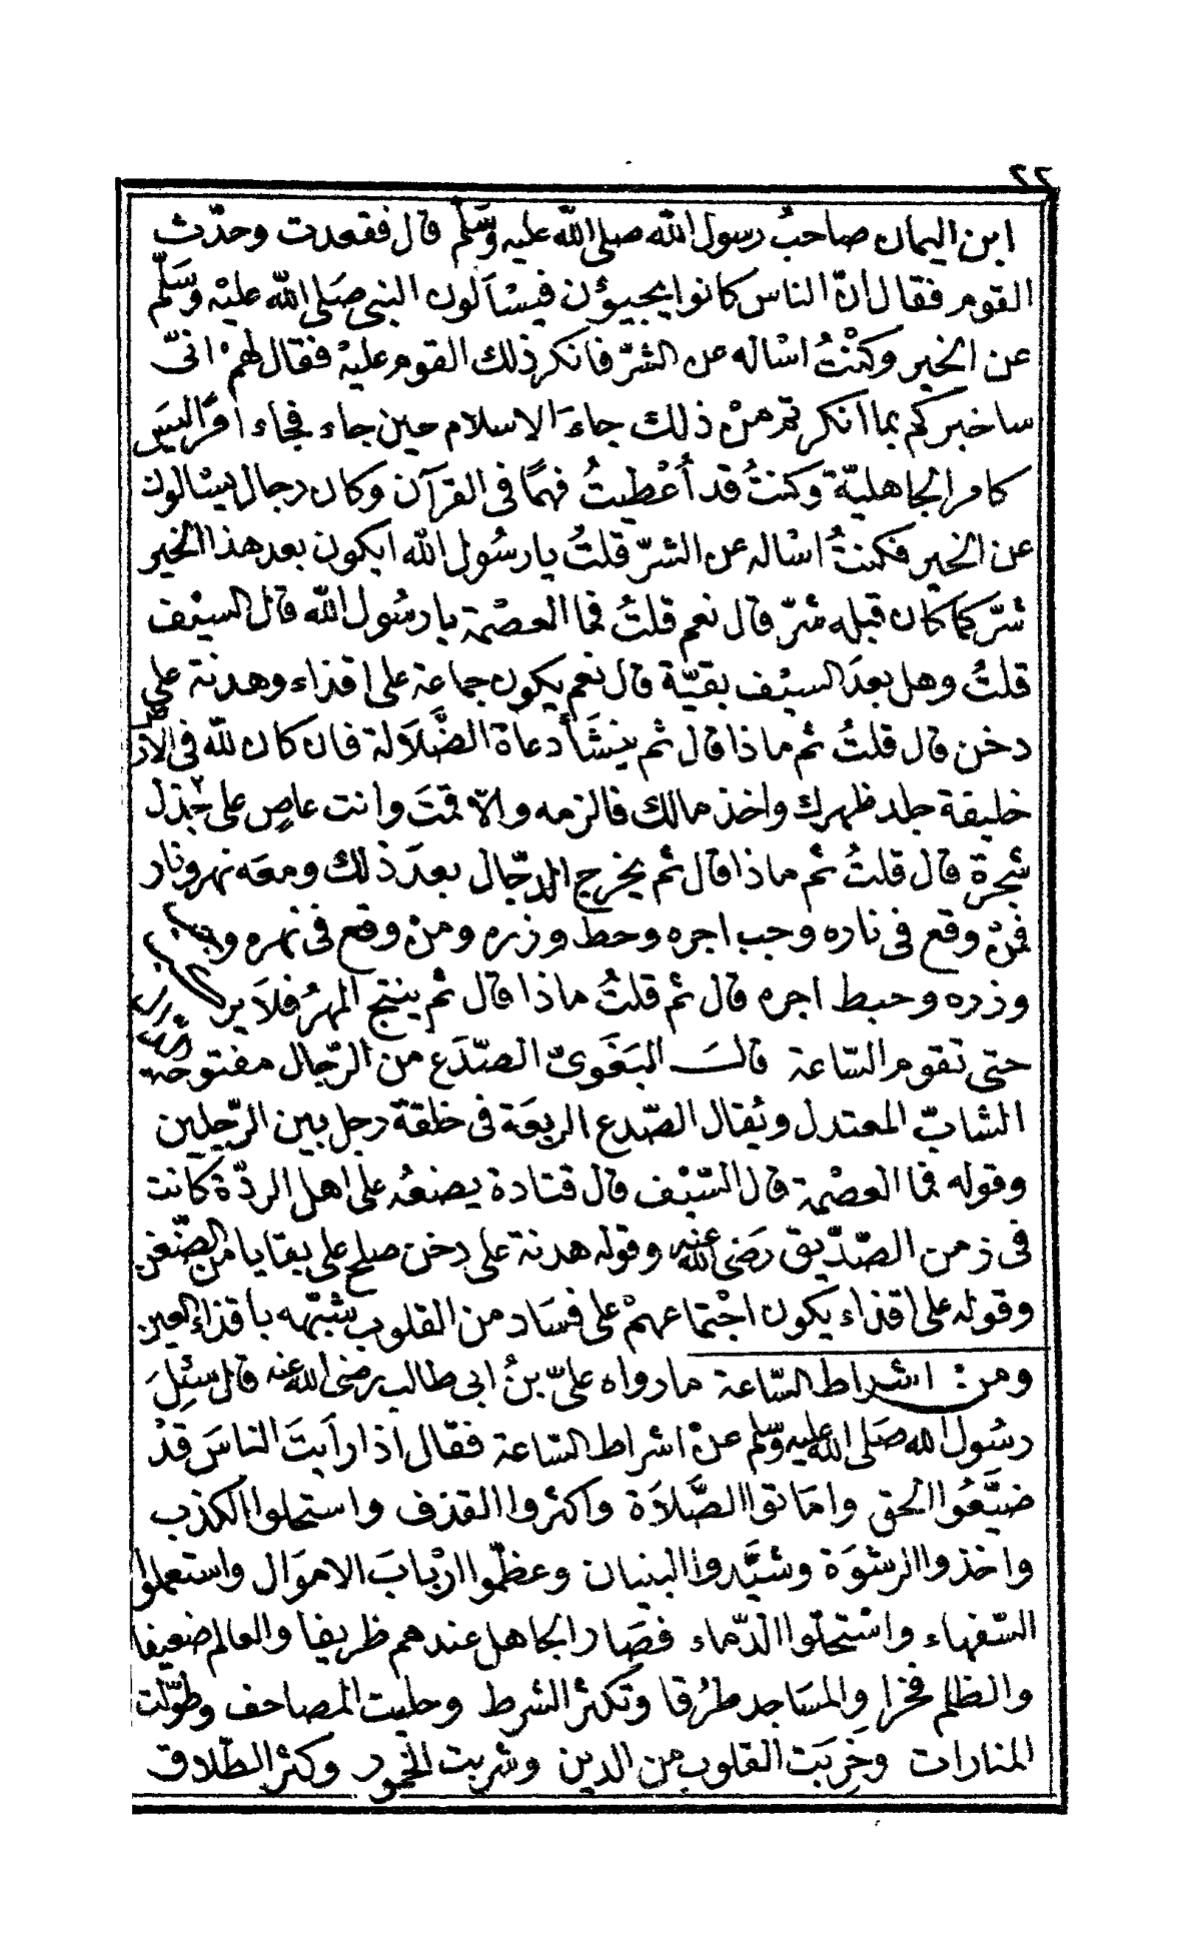 ٢٢
ابن اليمان صاحبُ رسول الله صلى الله عليه وسَلّم قال فقعدت وحدّث
القوم فقال انّ الناس كانوا يجيبؤن فيسْاَلون النبي صَلى الله عليْه وسَلّم
عن الخير وكنْتُ اسْاله عن الشرّ فانكر ذلك القوم عليْه فقال لهمْ انّى
ساخبركم بما انكرتم منْ ذلك جاءَ الاسلام حين جاء فجاء امرٌ ليسَ
كامر الجاهليّة وكنتُ قد أُعْطيتُ فهمًا فى القرآن وكان رجال يسْالون
عن الخير فكنتُ اسْاله عن الشرّ قلتُ يا رسُول الله ايكون بعد هذا الخير
شرّ كما كان قبله شرّ قال نعم قلتُ فما العصْمة يا رسُول الله قال السيْف
قلتُ وهل بعدَ السيْف بقيّة قال نعم يكون جماعة على اقذاء وهدنة على
دخن قال قلتُ ثم ماذا قال ثم ينشَأ دعاة الضَّلاَلة فان كان لله فى الارض
خليفة جلد ظهرك واخذ مالك فالزمه والا فمتَ وانت عاصٍ على جذل
شجرة قال قلتُ ثم ماذا قال ثم يخرج الدجّال بعدَ ذلك ومعَه نهر ونار
فمنْ وقع فى ناره وجب اجره وحط وزره ومنْ وقع فى نهره وجب
وزره وحبط اجره قال ثم قلتُ ماذا قال ثم ينتج المهرُ فلاَ يركب
حتى تقوم السّاعة قالــَ البَغَوىّ الصّدَع من الرّجال مفتوحة
الشابّ المعتدل ويُقال الصّدع الربعَة فى خلقة رجل بين الرّجلين
وقوله فما العصْمة قال السّيْف قال قتادة يضعُه على اهل الردّة كانت
فى زمن الصّدّيق رَضى الله عنه وقوله هدنة على دخن صلح على بقايا من الضّغن
وقوله على اقذاء يكون اجْتماعهمْ على فسَاد من القلوب شبّهه باقذاء العين
ومن: اشراط السّاعة ما رواه علىّ بنُ ابى طالب رضى الله عنه قال سئِلَ
رسُول الله صَلى الله عليه وسّلم عنْ اشراط السّاعة فقال اذا رأيتَ الناسَ قدْ
ضيَّعُوا الحق واماتوا الصَّلاَة واكثروا القذف واستحلوا الكذب
واخذوا الرشوَة وشيَّدوا البنيان وعظّموا ارْبابَ الاموَال واستعملوا
السّفهاء واسْتحلّوا الدّماء فصَار الجاهل عندهم ظريفا والعالم ضعيفا
والظلم فخرا والمسَاجد طرُقا وتكثر الشرط وحليت المصاحف وطوّلت
المنارات وخِربَت القلوب من الدين وشربت الخمور وكثر الطّلاق